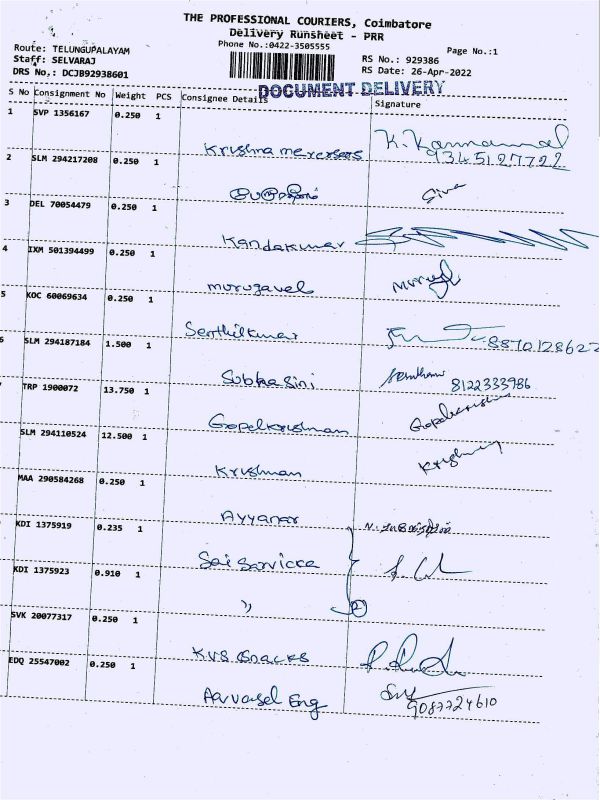 THE PROFESSIONAL COURIERS, Coimbatore
Delivery Runsheet - PRR
Phone No.:0422-3505555
Page No.:1
Route: TELUNGUPALAYAM
Staff: SELVARAJ
DRS No,: DCJB92938601
RS No.: 929386
RS Date: 26-Apr-2022
DOCUMENT DELIVERY
S No Consignment No Weight PCS Consignee Details Signature
1 SVP 1356167 0.250 1
Krishna K. Kannammal
9345127722
2 SLM 294217208 0.250 1
Siva
3 DEL 70054479 0.250 1
Kandakumar
4 IXM 501394499 0.250 1
murugavel
5 KOC 60069634 0.250 1
Senthilkumar 8870128622
6 SLM 294187184 1.500 1
Subhasini 8122333986
7 TRP 1900072 13.750 1
Gopalkrishnan Gopalakrishnan
SLM 294110524 12.500 1
Krishnan
MAA 290584268 0.250 1
Ayyanar
KDI 1375919 0.235 1
Sai Sarvicka
KDI 1375923 0.910 1
,, 2
SVK 20077317 0.250 1
KVS Snacks
EDQ 25547002 0.250 1
Aarvasel Eng 9087724610